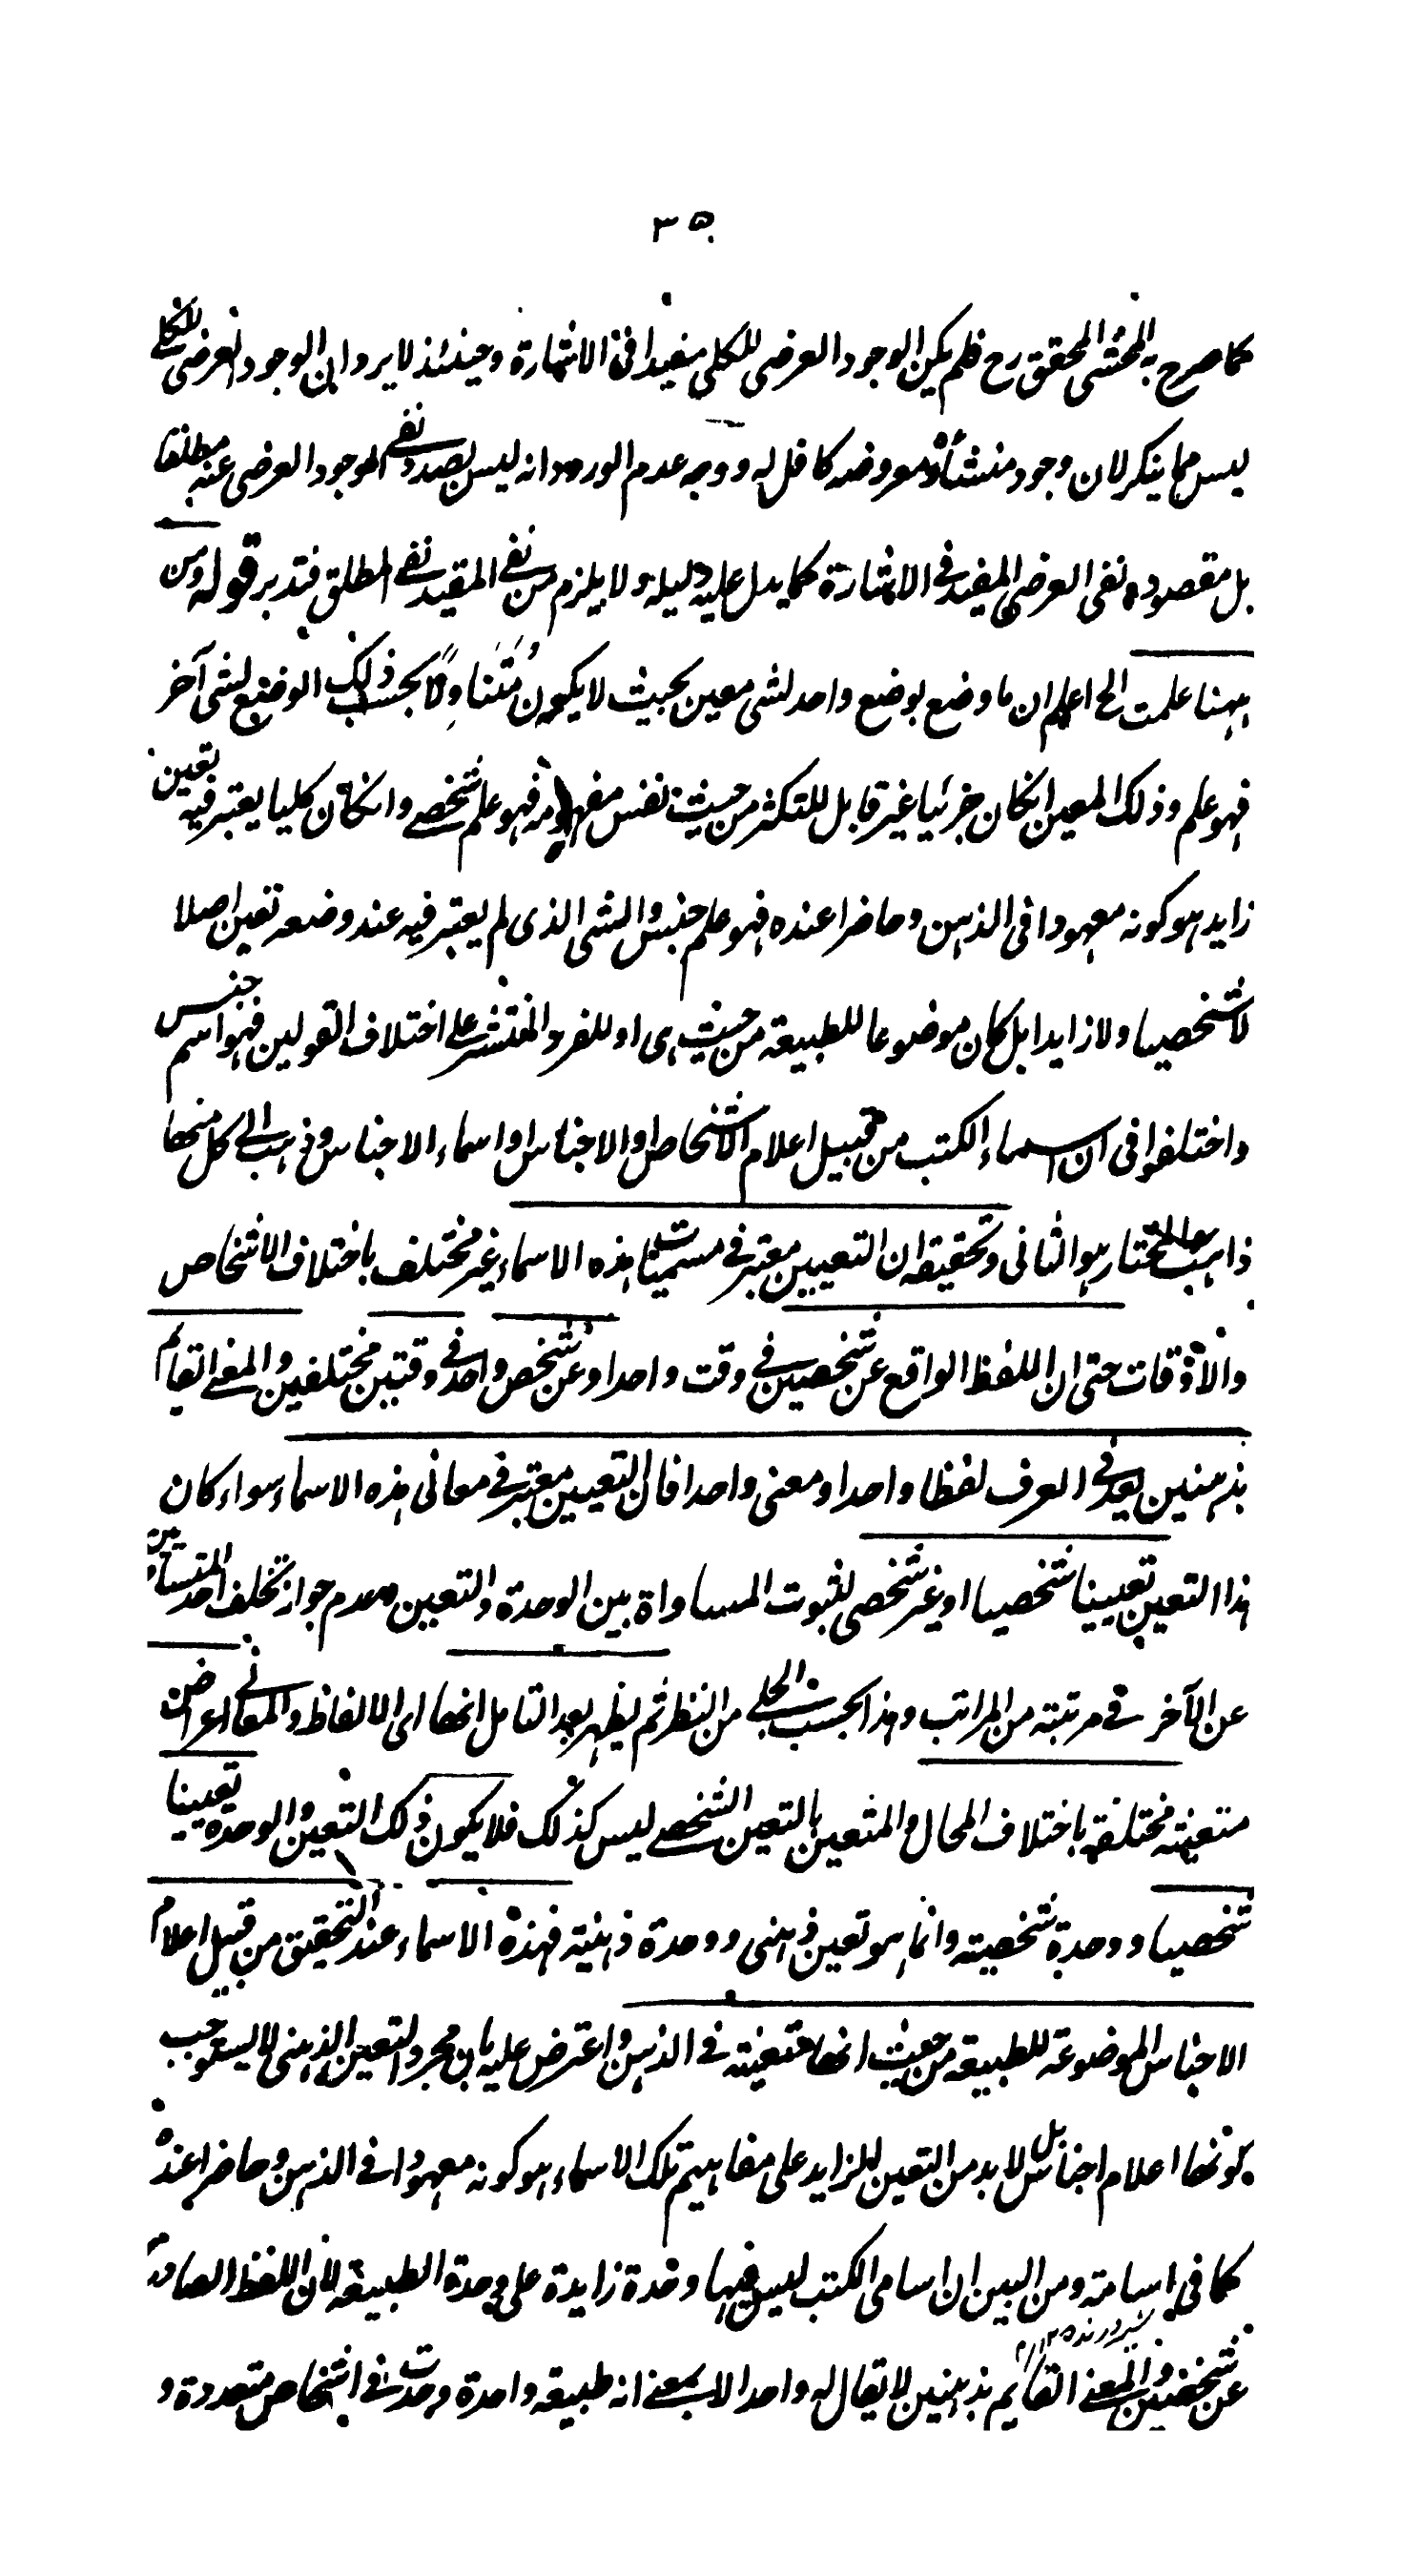 ٣٥
كما صرح به المحشى المحقق رح فلم يكن الوجود العرضى للكلى مفيدا فى الاشارة وحينئذ لا يرد ان الوجود العرضى للكلى
ليس مما ينكر لان وجود منشأه ومعروضه كافل له ووجه عدم الورود انه ليس بصدد نفى الوجود العرضى عنه مطلقا
بل مقصوده نفى العرضى المفيد فى الاشارة كما يدل عليه دليله ولا يلزم من نفى المقيد نفى المطلق فتدبر قوله ومن
ههنا علمت الخ اعلم ان ما وضع بوضع واحد لشى معين بحيث لا يكون مُتَنَاوِلًا بحسب ذلك الوضع لشى آخر
فهو علم وذلك المعين انكان جزئيا غير قابل للتكثر من حيث نفس مفهومه فهو علم شخصے وانكان كليا يعتبر فيه تعين
زايد هو كونه معهودا فى الذهن وحاضرا عنده فهو علم جنس والشى الذى لم يعتبر فيه عند وضعه تعين اصلا
لا شخصيا ولا زايدا بل كان موضوعا للطبيعة من حيث هى او للفرد المنتشر على اختلاف القولين فهو اسم جنس
واختلفوا فى ان اسماء الكتب من قبيل اعلام الاشخاص او الاجناس او اسماء الاجناس وذهب الى كل منها
ذاهب والمختار هو الثانى وتحقيقه ان التعيين معتبر فى مسميات هذه الاسماء غير مختلف باختلاف الاشخاص
والاوقات حتى ان اللفظ الواقع عن شخصين فے وقت واحد او عن شخص واحد فى وقتين مختلفين والمعنى القايم
بذهنين يعد فى العرف لفظا واحدا ومعنى واحدا فان التعيين معتبر فى معانى هذه الاسماء سواء كان
هذا التعين تعيينا شخصيا او غير شخصى لثبوت المساواة بين الوحدة والتعين وعدم جواز تخلف احد المتساويين
عن الآخر فے مرتبة من المراتب وهذا بحسب الجلے من النظر ثم يظهر بعد التامل انها اى الالفاظ والمعانى اعراض
متعينة مختلفة باختلاف المحال والمتعين بالتعين الشخصے ليس كذلك فلا يكون ذلك التعين والوحدة تعيينا
شخصيا ووحدة شخصية وانما هو تعين ذهنى ووحدة ذهنية فهذه الاسماء عند التحقيق من قبيل اعلام
الاجناس الموضوعة للطبيعة من حيث انها متعينة فے الذهن واعترض عليه بان مجرد التعين الذهنى لا يستوجب
كونها اعلام اجناس بل لا بد من التعين الزايد على مفاهيم تلك الاسماء هو كونه معهودا فى الذهن وحاضرا عنده
كما فى اسامة ومن البين ان اسامى الكتب ليس فيها وحدة زايدة على وحدة الطبيعة لان اللفظ الصادر
عن شخصين والمعنے القايم بذهنين لا يقال له واحد الا بمعنے انه طبيعة واحدة وجدت فے اشخاص متعددة و